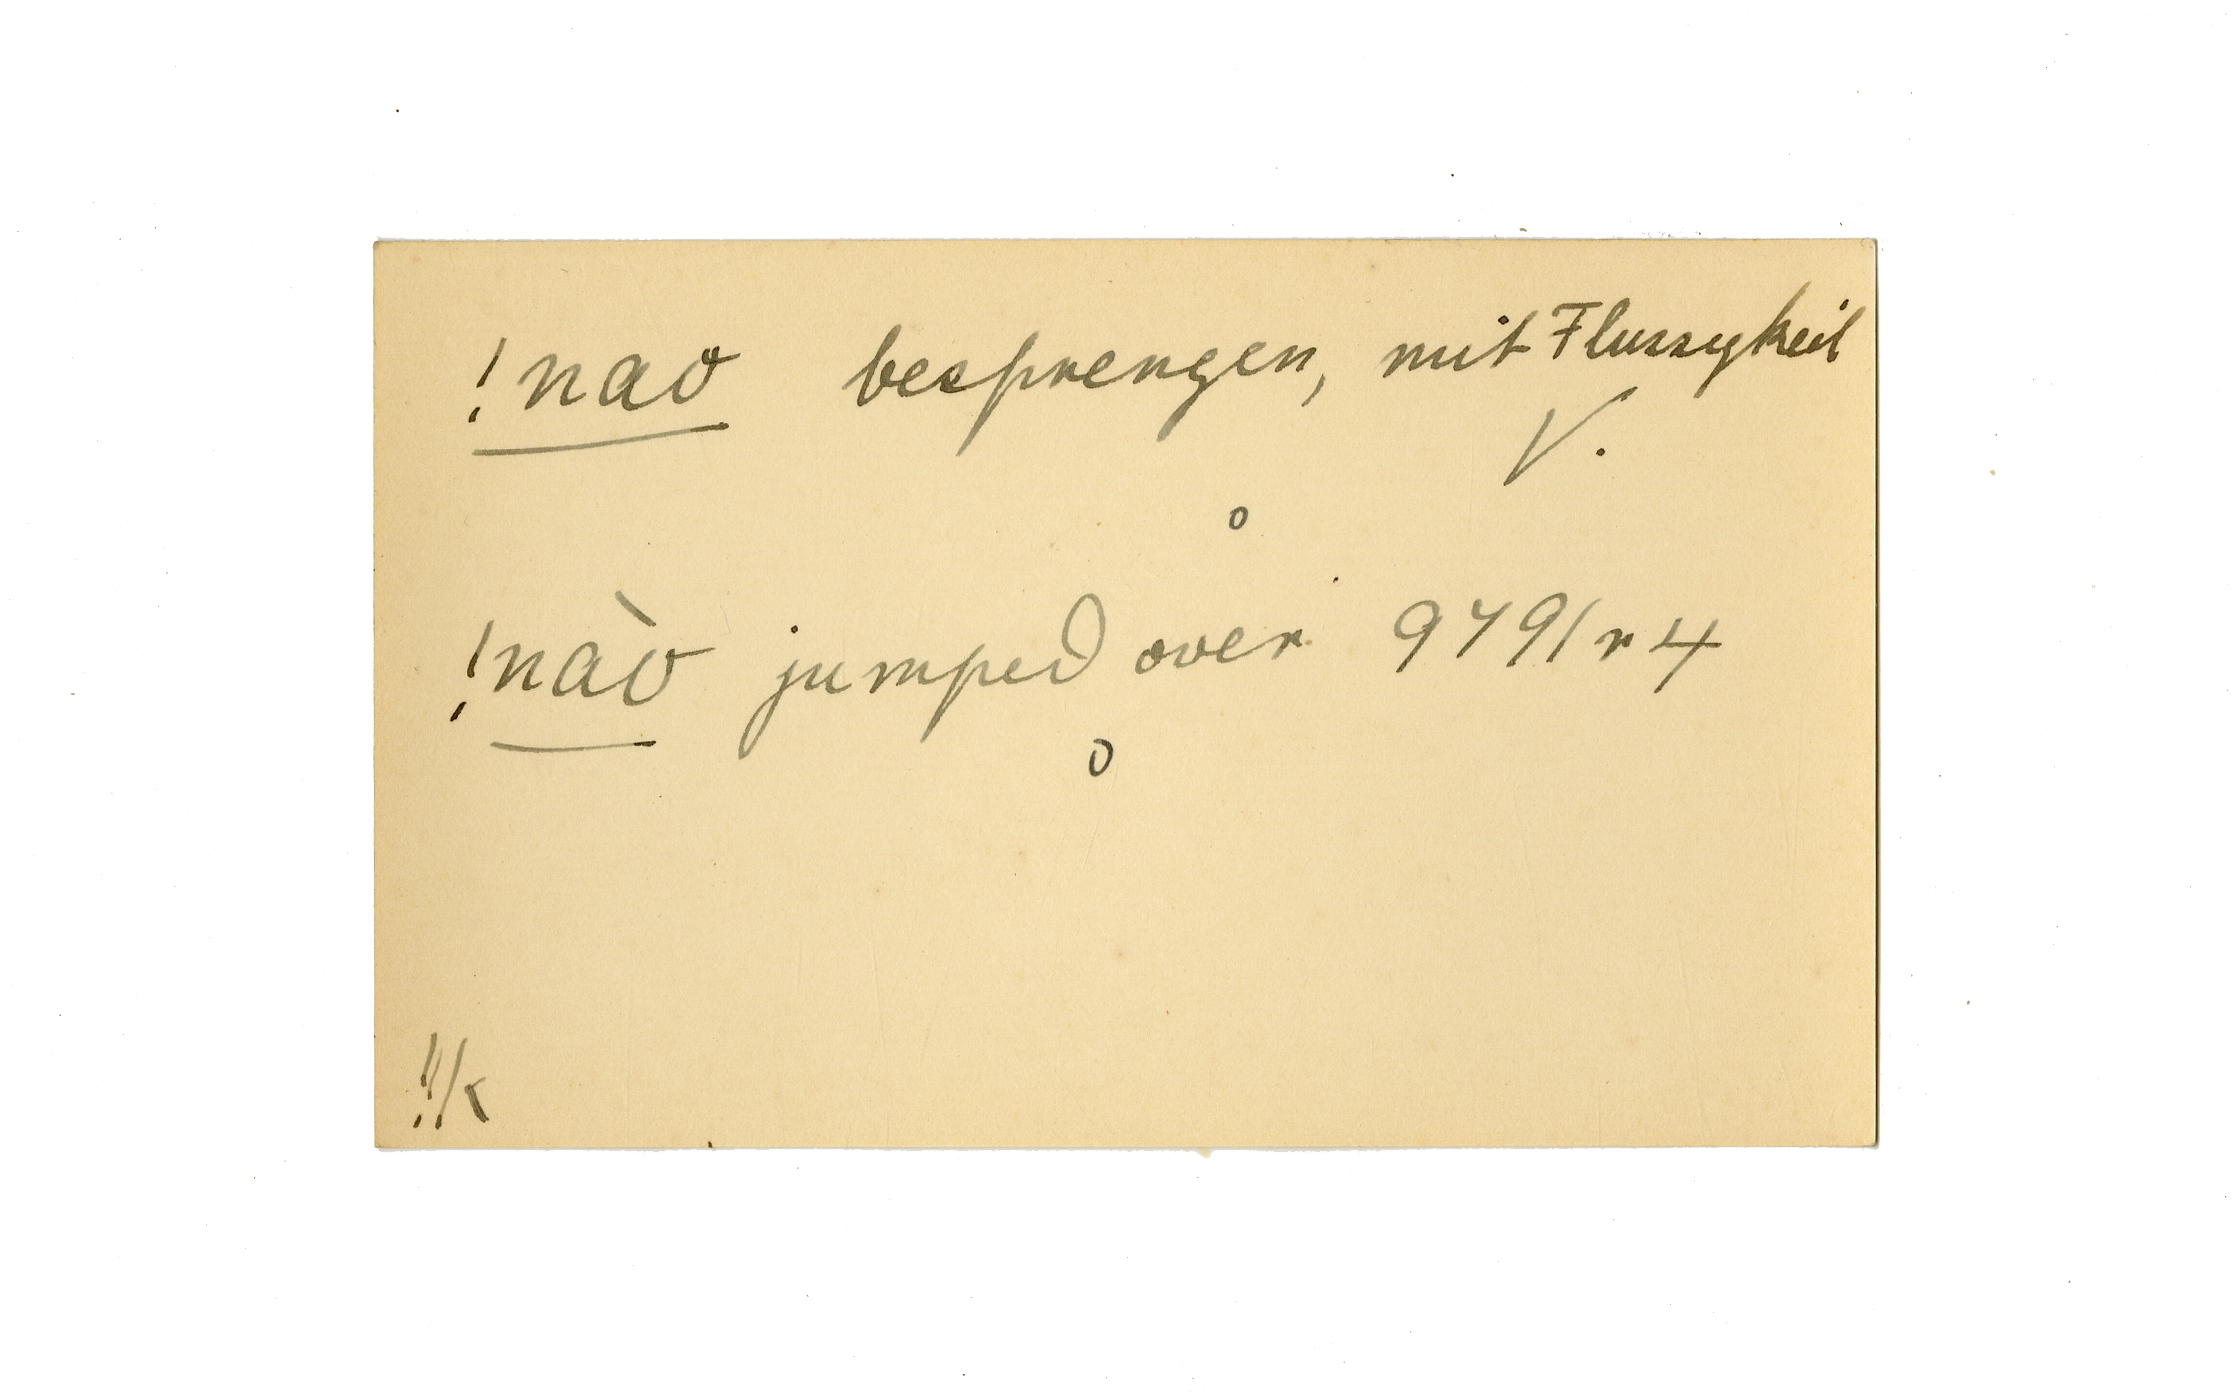 !nao besprengen, mit Flussigkeit
V.
o
!nào jumped over 9791 r 4
o